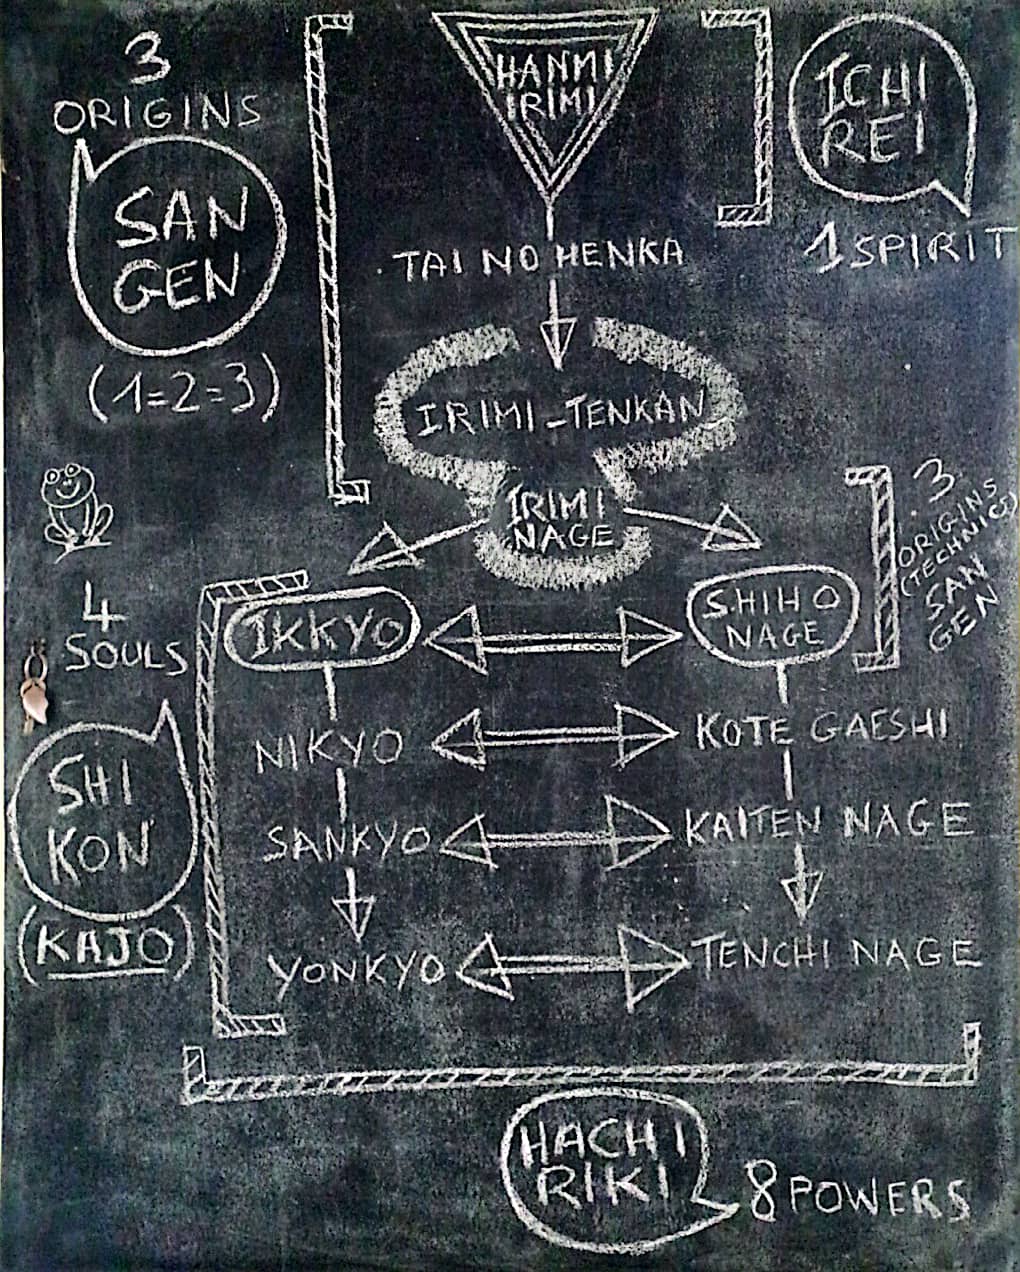 3
ORIGINS
SAN
GEN
(1=2=3)
HANMI
IRIMI
ICHI
REI
1 SPIRIT
TAI NO HENKA
IRIMI-TENKAN
IRIMI
NAGE
3
ORIGINS
(TECHNICS)
SAN
GEN
4
SOULS
SHI
KON
(KAJO)
IKKYO
SHIHO
NAGE
NIKYO
KOTE GAESHI
SANKYO
KAITEN NAGE
YONKYO
TENCHI NAGE
HACHI
RIKI
8 POWERS